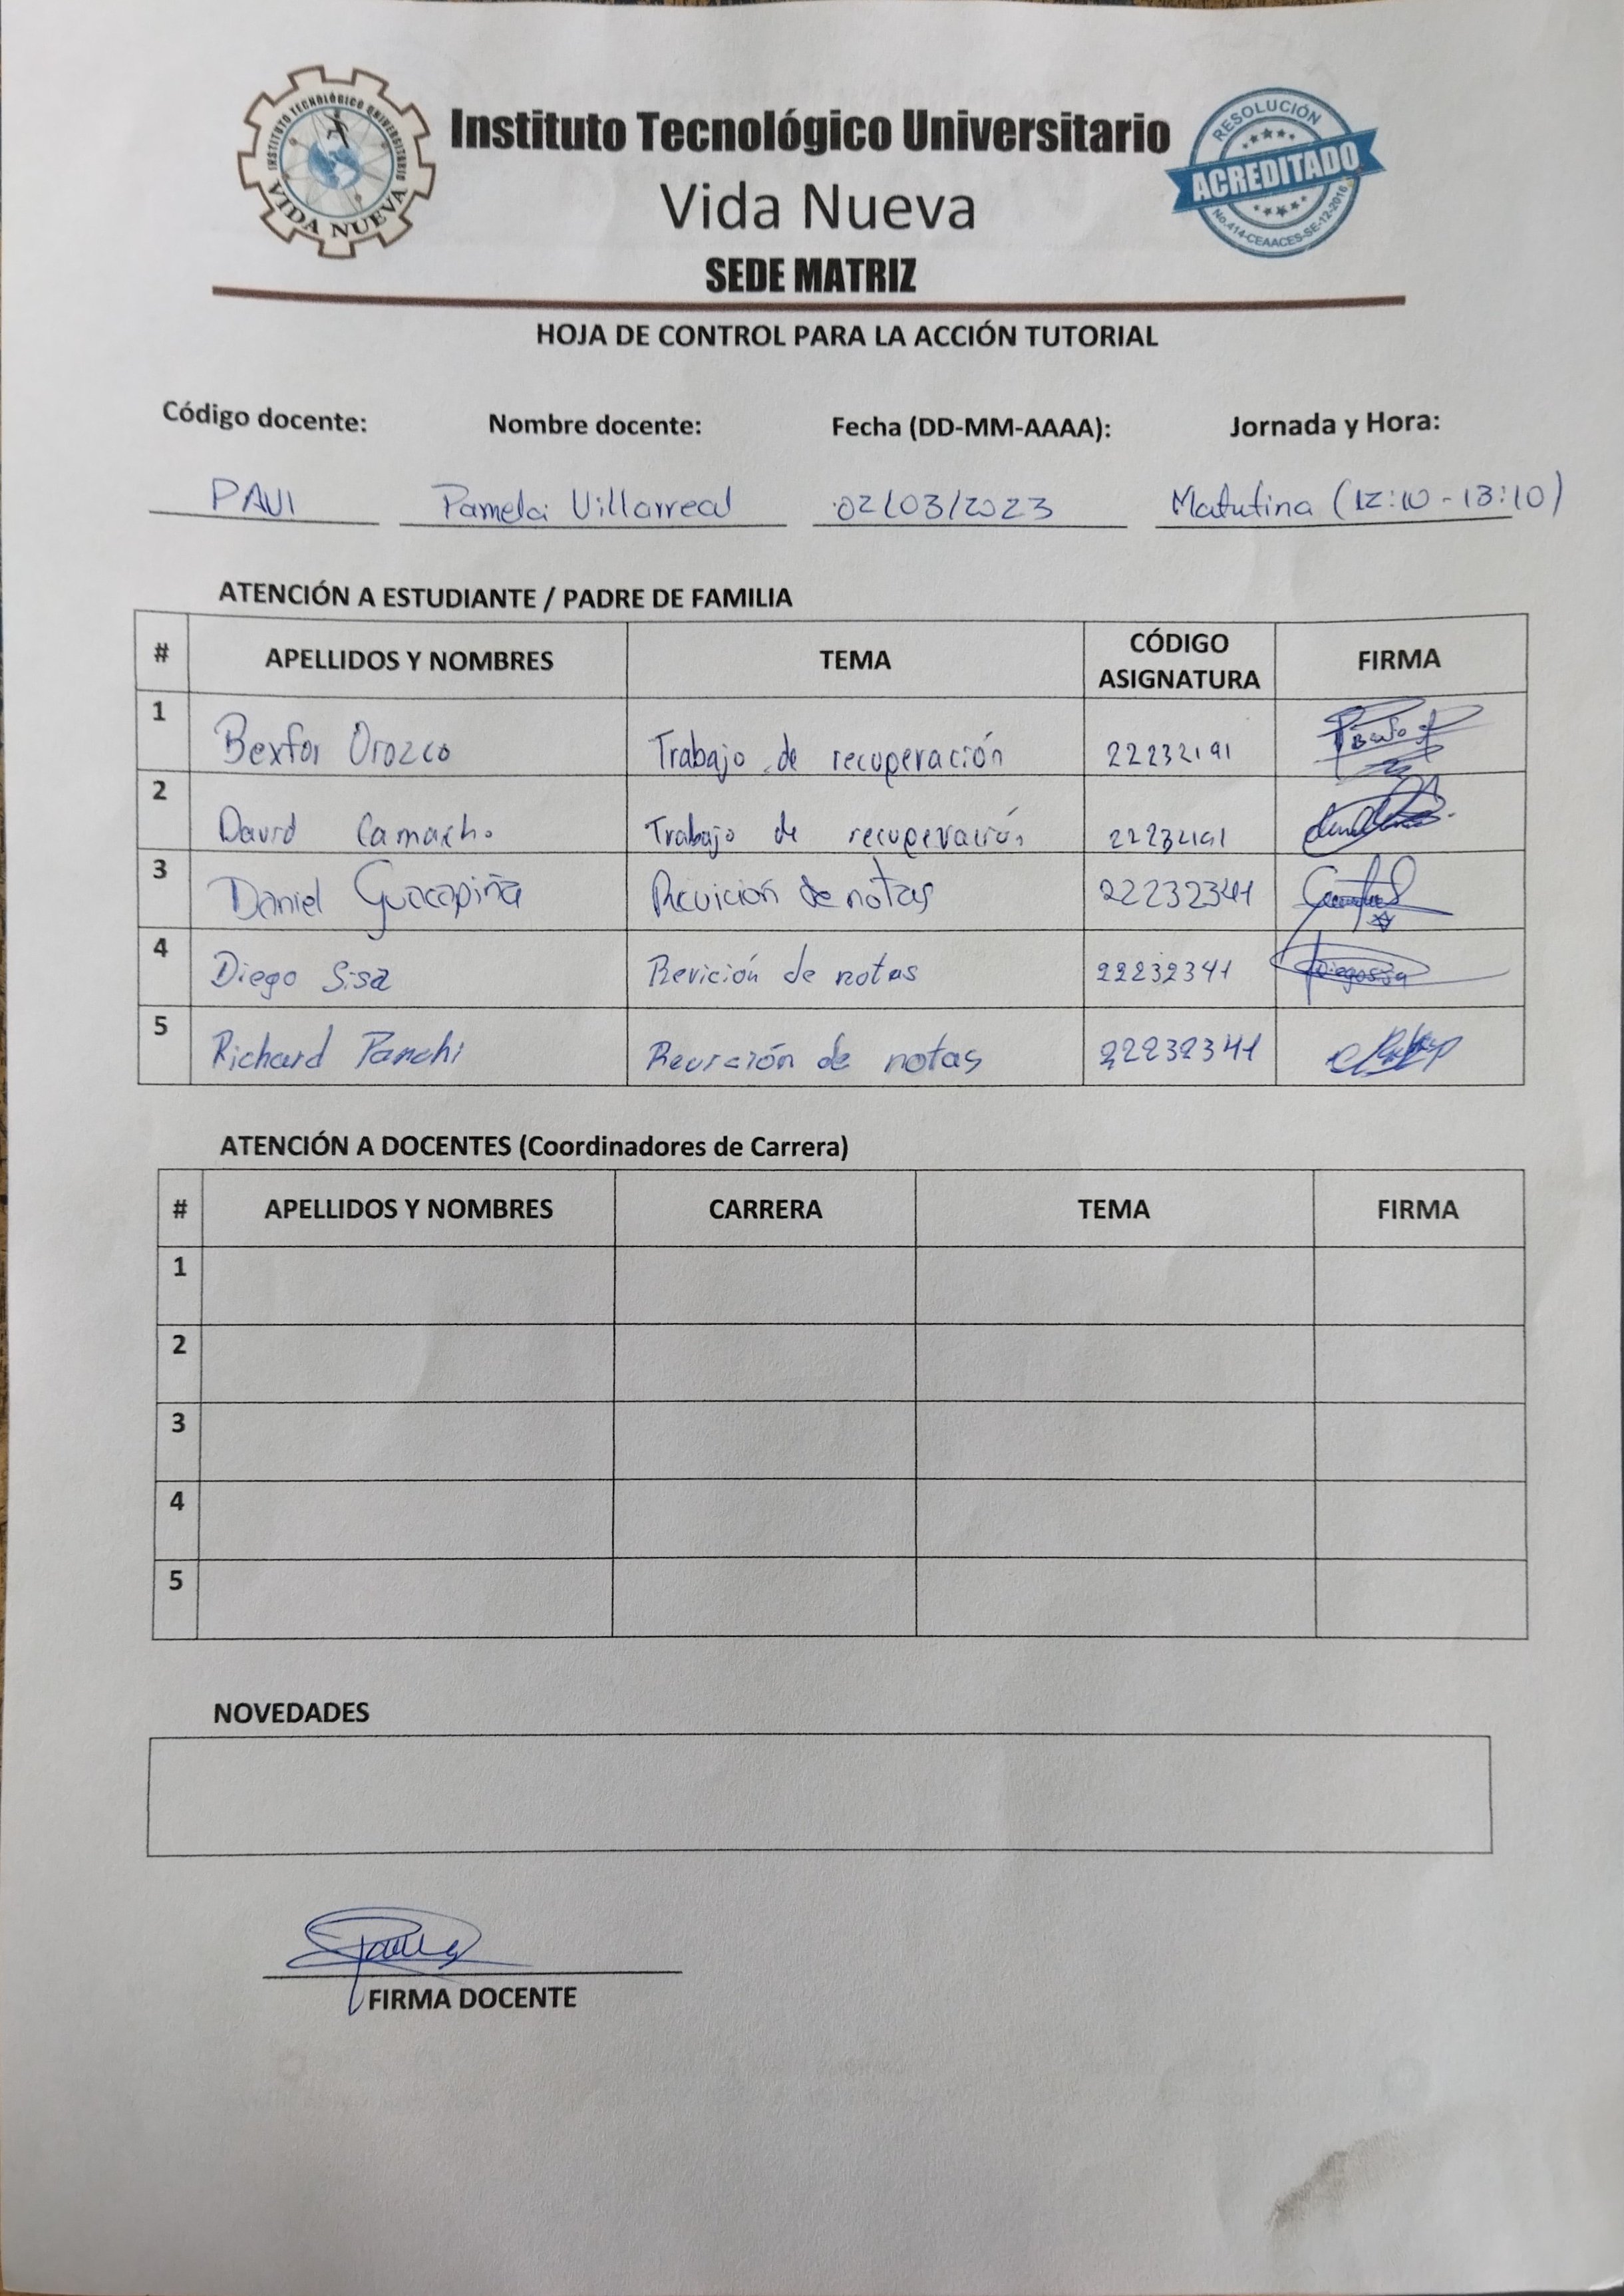 INSTITUTO TECNOLÓGICO UNIVERSITARIO
VIDA NUEVA
Instituto Tecnológico Universitario
Vida Nueva
SEDE MATRIZ
RESOLUCIÓN
ACREDITADO
No.414-CEAACES-SE-12-2016
HOJA DE CONTROL PARA LA ACCIÓN TUTORIAL
Código docente: Nombre docente: Fecha (DD-MM-AAAA): Jornada y Hora:
PAVI Pamela Villarreal 02/03/2023 Matutina (12:10-13:10)
ATENCIÓN A ESTUDIANTE / PADRE DE FAMILIA
# APELLIDOS Y NOMBRES TEMA CÓDIGO ASIGNATURA FIRMA
1 Orozco Trabajo de recuperación 22232191
2 David Camacho Trabajo de recuperación 22232191
3 Daniel Guacapiña Revición de notas 22232341
4 Diego Sisa Revición de notas 22232341
5 Richard Panchi de notas 22232341
ATENCIÓN A DOCENTES (Coordinadores de Carrera)
# APELLIDOS Y NOMBRES CARRERA TEMA FIRMA
1
2
3
4
5
NOVEDADES
FIRMA DOCENTE